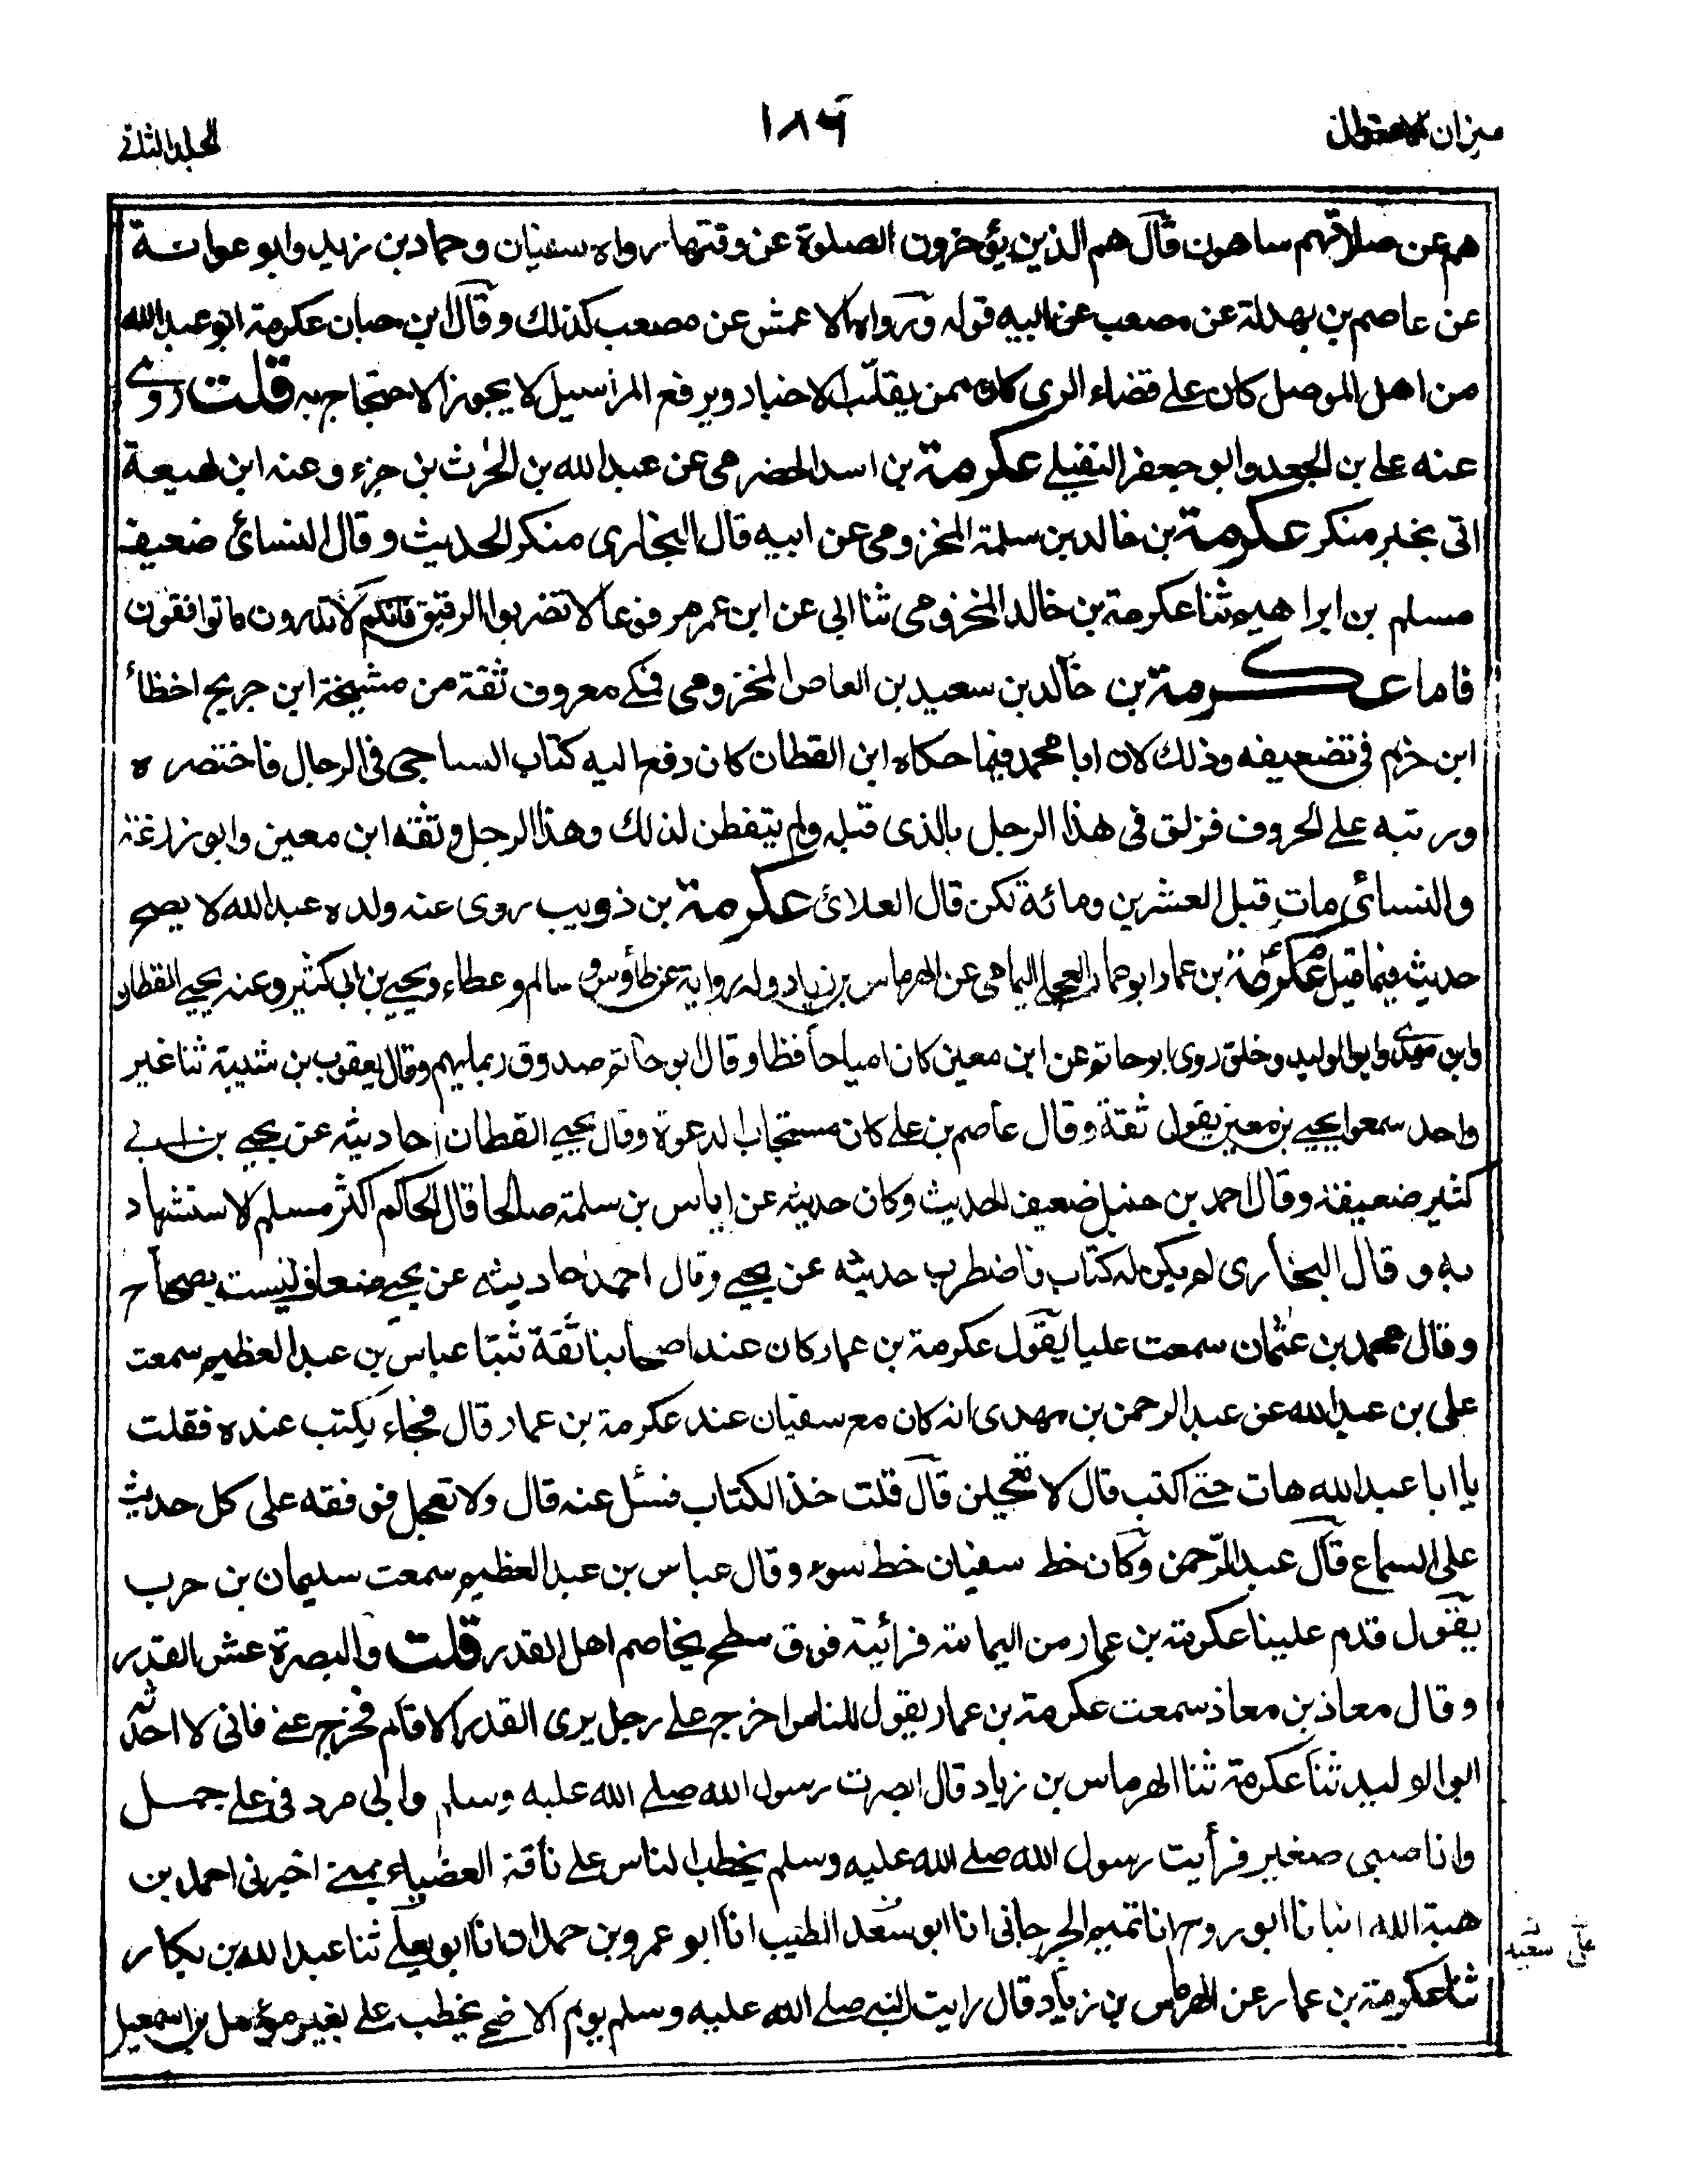 ميزان الاعتدال
١٨٦
المجلد الثاني
هم عن صلاتهم ساهون قال هم الذين يؤخرون الصلوة عن وقتها رواه سفيان وحماد بن زيد وابو عوانة
عن عاصم بن بهدلة عن مصعب عن ابيه قوله ورواه الاعمش عن مصعب كذلك وقال ابن حبان عكرمة ابو عبد الله
من اهل الموصل كان على قضاء الرى كان ممن يقلب الاخبار ويرفع المراسيل لا يجوز الاحتجاج به قلت روى
عنه على بن الجعد وابو جعفر النفيلى عكرمة بن اسد الحضرمى عن عبد الله بن الحرث بن جزء وعنه ابن لهيعة
اتى بخبر منكر عكرمة بن خالد بن سلمة المخزومى عن ابيه قال البخارى منكر الحديث وقال النسائى ضعيف
مسلم بن ابراهيم ثنا عكرمة بن خالد المخزومى ثنا ابى عن ابن عمر مرفوعا لا تضربوا الرقيق فانكم لا تدرون ما توافقون
فاما عكرمة بن خالد بن سعيد بن العاص المخزومى فمكى معروف ثقة من مشيخة ابن جريج اخطأ
ابن حزم فى تضعيفه وذلك لان ابا محمد فيما حكاه ابن القطان كان دفع اليه كتاب الساجى فى الرجال فاختصره
ورتبه على الحروف فزلق فى هذا الرجل بالذى قبله ولم يتفطن لذلك وهذا الرجل وثقه ابن معين وابو زرعة
والنسائى مات قبل العشرين ومائة لكن قال العلائى عكرمة بن ذويب روى عنه ولده عبد الله لا يصح
حديثه فيما قيل عكرمة بن عمار ابو عمار العجلى اليمامى عن الهرماس بن زياد وله رواية عن طاؤس وسالم وعطاء ويحيى بن ابى كثير وعنه يحيى القطان
وابن مهدى وابو الوليد وخلق روى ابو حاتم عن ابن معين كان اميا حافظا وقال ابو حاتم صدوق ربما يهم وقال يعقوب بن شيبة ثنا غير
واحد سمعوا يحيى بن معين يقول ثقة وقال عاصم بن على كان مستجاب الدعوة وقال يحيى القطان احاديثه عن يحيى بن ابى
كثير ضعيفة وقال احمد بن حنبل ضعيف الحديث وكان حديثه عن اياس بن سلمة صالحا قال الحاكم اكثر مسلم الاستشهاد
به وقال البخارى لم يكن له كتاب فاضطرب حديثه عن يحيى وقال احمد احاديثه عن يحيى ضعاف ليست بصحاح
وقال محمد بن عثمان سمعت عليا يقول عكرمة بن عمار كان عند اصحابنا ثقة ثبتا عباس بن عبد العظيم سمعت
على بن عبد الله عن عبد الرحمن بن مهدى انه كان مع سفيان عند عكرمة بن عمار قال فجاء يكتب عنده فقلت
يا ابا عبد الله هات حتى اكتب قال لا تعجلن قال قلت خذ الكتاب فسئل عنه قال ولا تعجل فوفقه على كل حديث
على السماع قال عبد الرحمن وكان خط سفيان خط سوء وقال عباس بن عبد العظيم سمعت سليمان بن حرب
يقول قدم علينا عكرمة بن عمار من اليمامة فرأيته فوق سطح يخاصم اهل القدر قلت والبصرة عش القدر
وقال معاذ بن معاذ سمعت عكرمة بن عمار يقول للناس اخرج على رجل يرى القدر الا قام فخرج عنى فانى لا احدثه
ابو الوليد ثنا عكرمة ثنا الهرماس بن زياد قال ابصرت رسول الله صلى الله عليه وسلم وابى مردفى على جمل
وانا صبى صغير فرأيت رسول الله صلى الله عليه وسلم يخطب الناس على ناقة العضباء بمنى اخبرنى احمد بن
هبة الله انبانا ابو روح انا تميم الجرجانى انا ابو سعد الطبيب انا ابو عمرو بن حمدان انا ابو يعلى ثنا عبد الله بن بكار
ثنا عكرمة بن عمار عن الهرماس بن زياد قال رايت النبى صلى الله عليه وسلم يوم الاضحى يخطب على بعير مؤمل بن اسمعيل